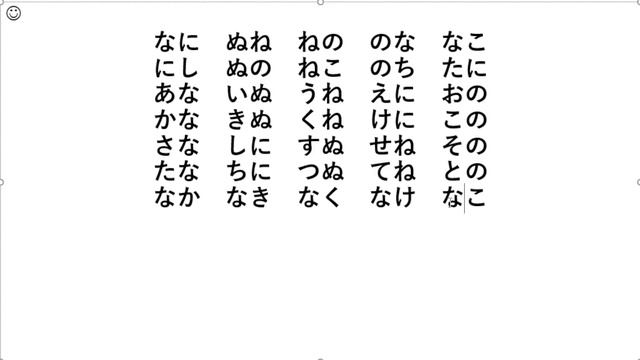 なに ぬね ねの のな なこ
にし ぬの ねこ のち たに
あな いぬ うね えに おの
かな きぬ くね けに この
さな しに すぬ せね その
たな ちに つぬ てね との
なか なき なく なけ なこ